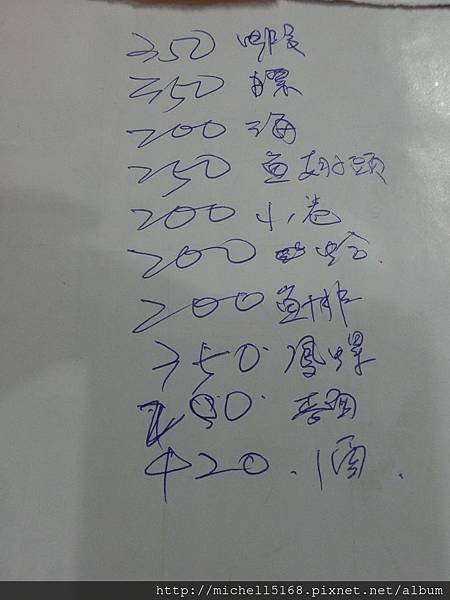 250 蝦
250 螺
200 海
250 魚頭
200 小卷
200 蛤
200 魚排
250 鳳螺
420 酒
http://michell5168.pixnet.net/album